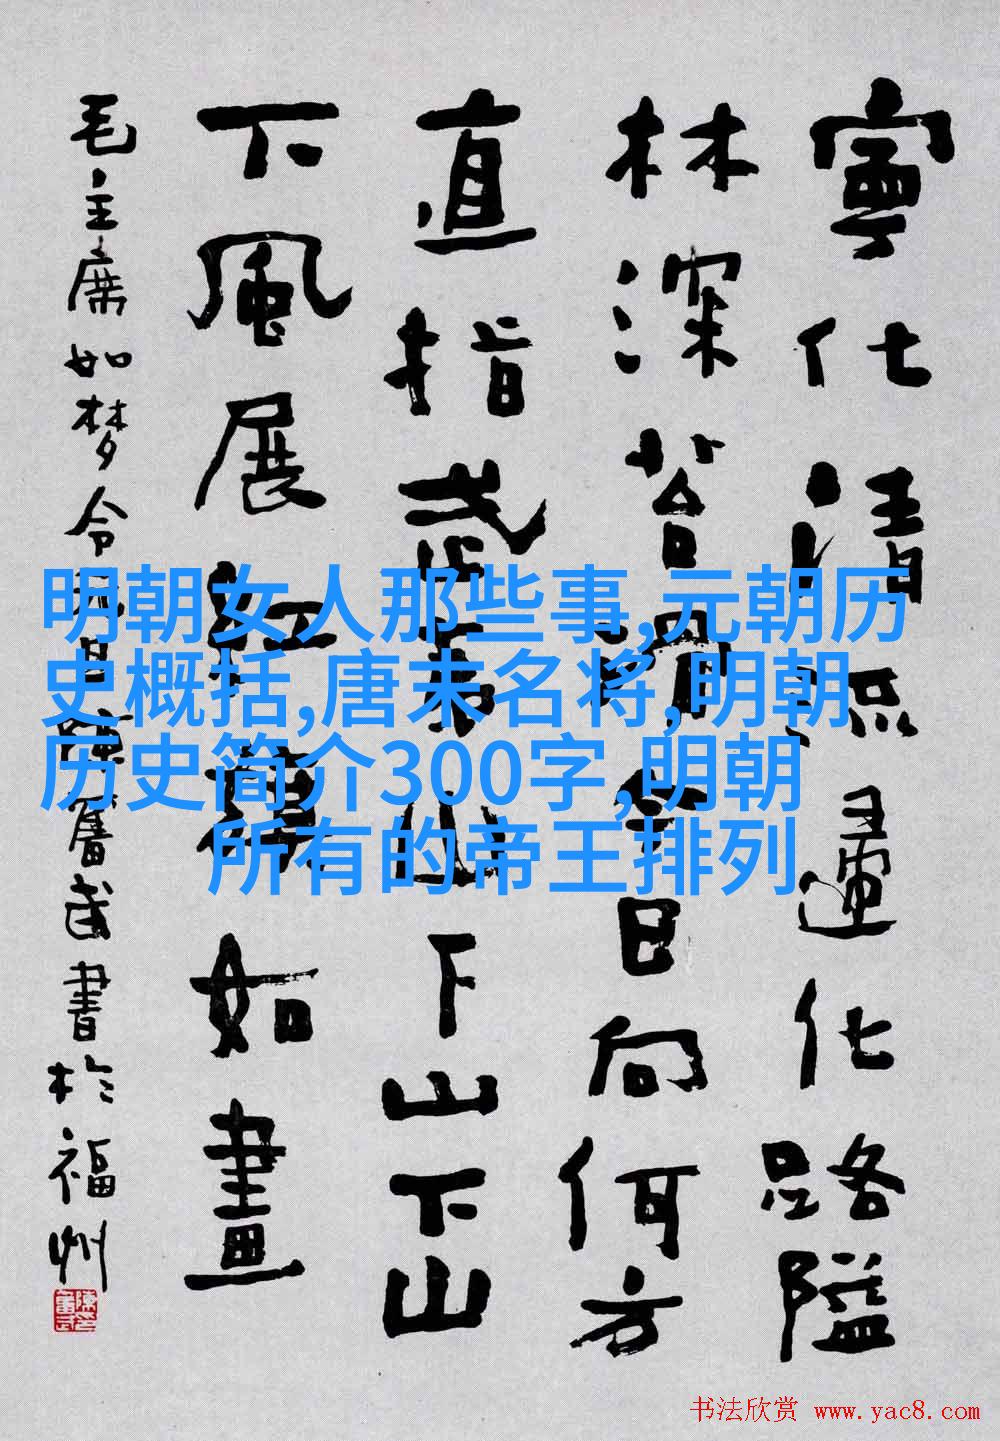 寧化清流歸化路隘
林深苔滑今日向何方
直指武夷山下山下山
下風展紅旗如畫
毛主席如梦令元旦陳奮武書於福州
明朝女人那些事,元朝历
史概括,唐末名将,明朝
历史简介300字,明朝
所有的帝王排列
书法欣赏 www.yac8.com